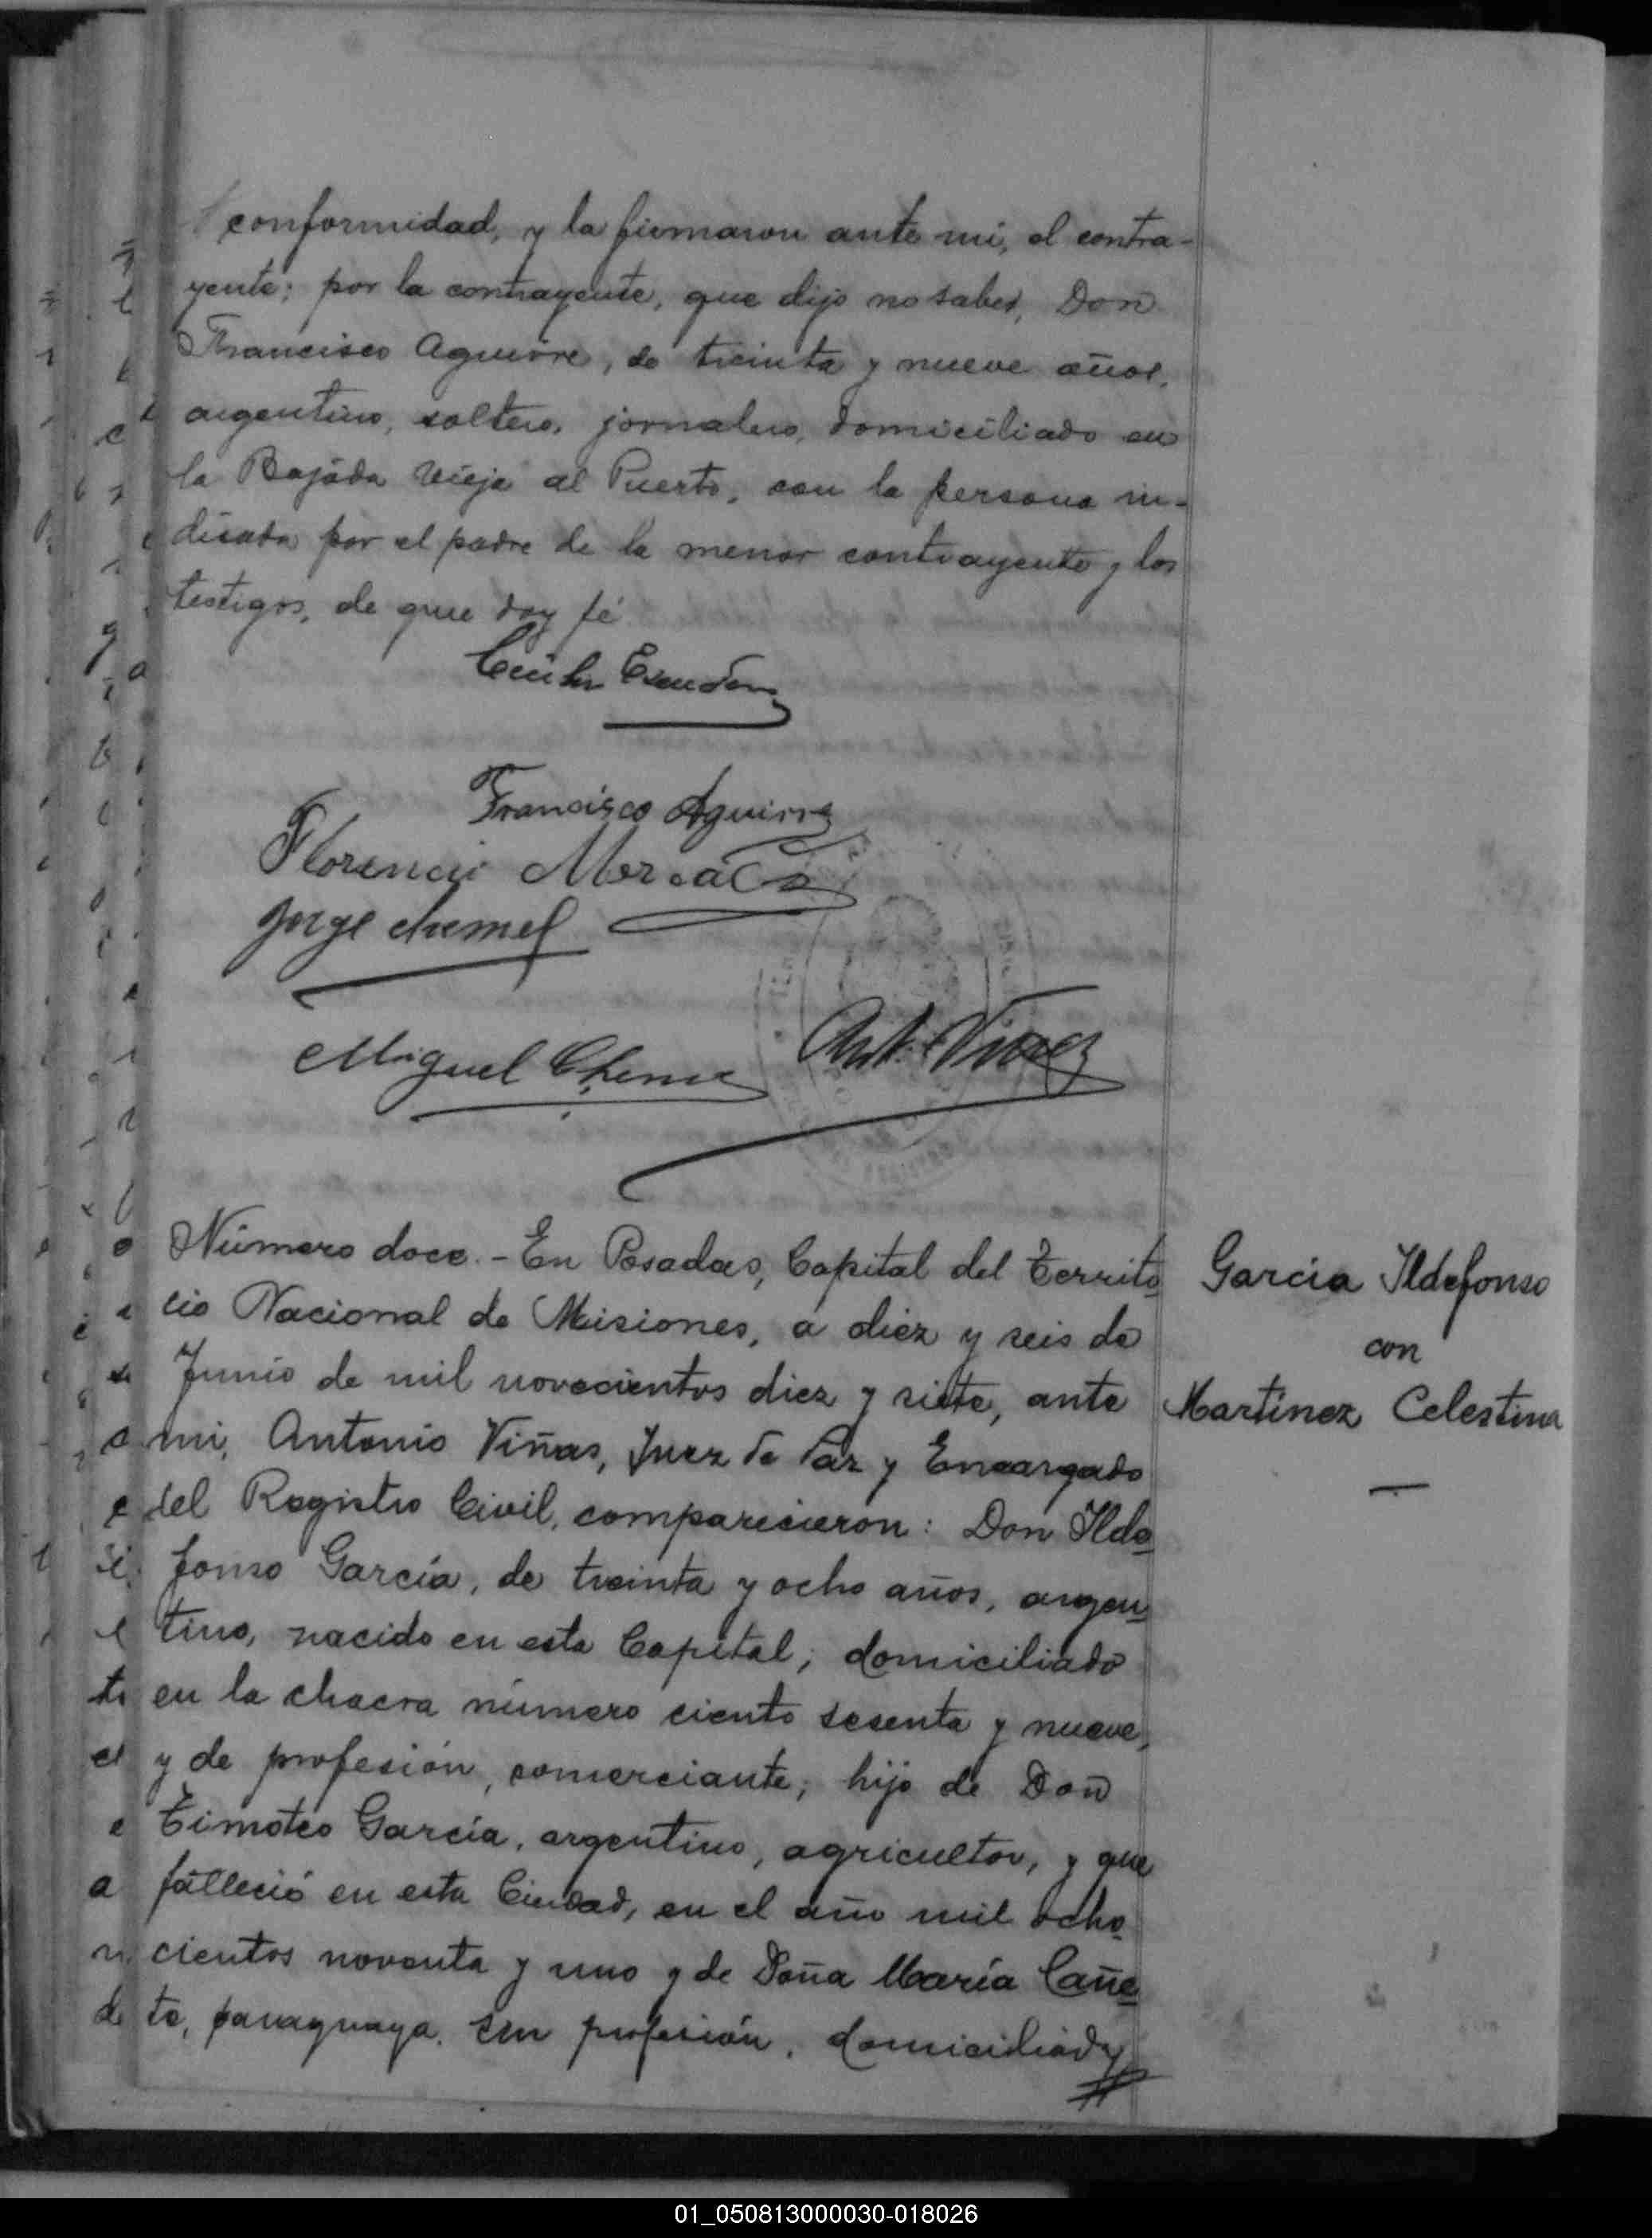 conformidad, y la firmaron ante mi, el contra-
yente; por la contrayente, que dijo no saber, Don
Francisco Aguirre, de treinta y nueve años,
argentino, soltero, jornalero, domiciliado en
la Bajada Vieja al Puerto, con la persona in-
dicada por el padre de la menor contrayente y los
testigos, de que doy fé
Francisco Aguirre
Florencio
Jorge Chemes
Miguel Cheme
Ant. Viñas
Número doce. - En Posadas, Capital del Territo
rio Nacional de Misiones, a diez y seis de
Junio de mil novecientos diez y siete, ante
mi, Antonio Viñas, Juez de Paz y Encargado
del Registro Civil, comparecieron: Don Ilde
fonso García, de treinta y ocho años, argen
tino, nacido en esta Capital; domiciliado
en la chacra número ciento sesenta y nueve,
y de profesión, comerciante; hijo de Don
Timoteo García, argentino, agricultor, y que
falleció en esta Ciudad, en el año mil ocho
cientos noventa y uno y de Doña María Cañe
te, paraguaya, sin profesión, domiciliada
García Ildefonso
con
Martínez Celestina
01_050813000030-018026